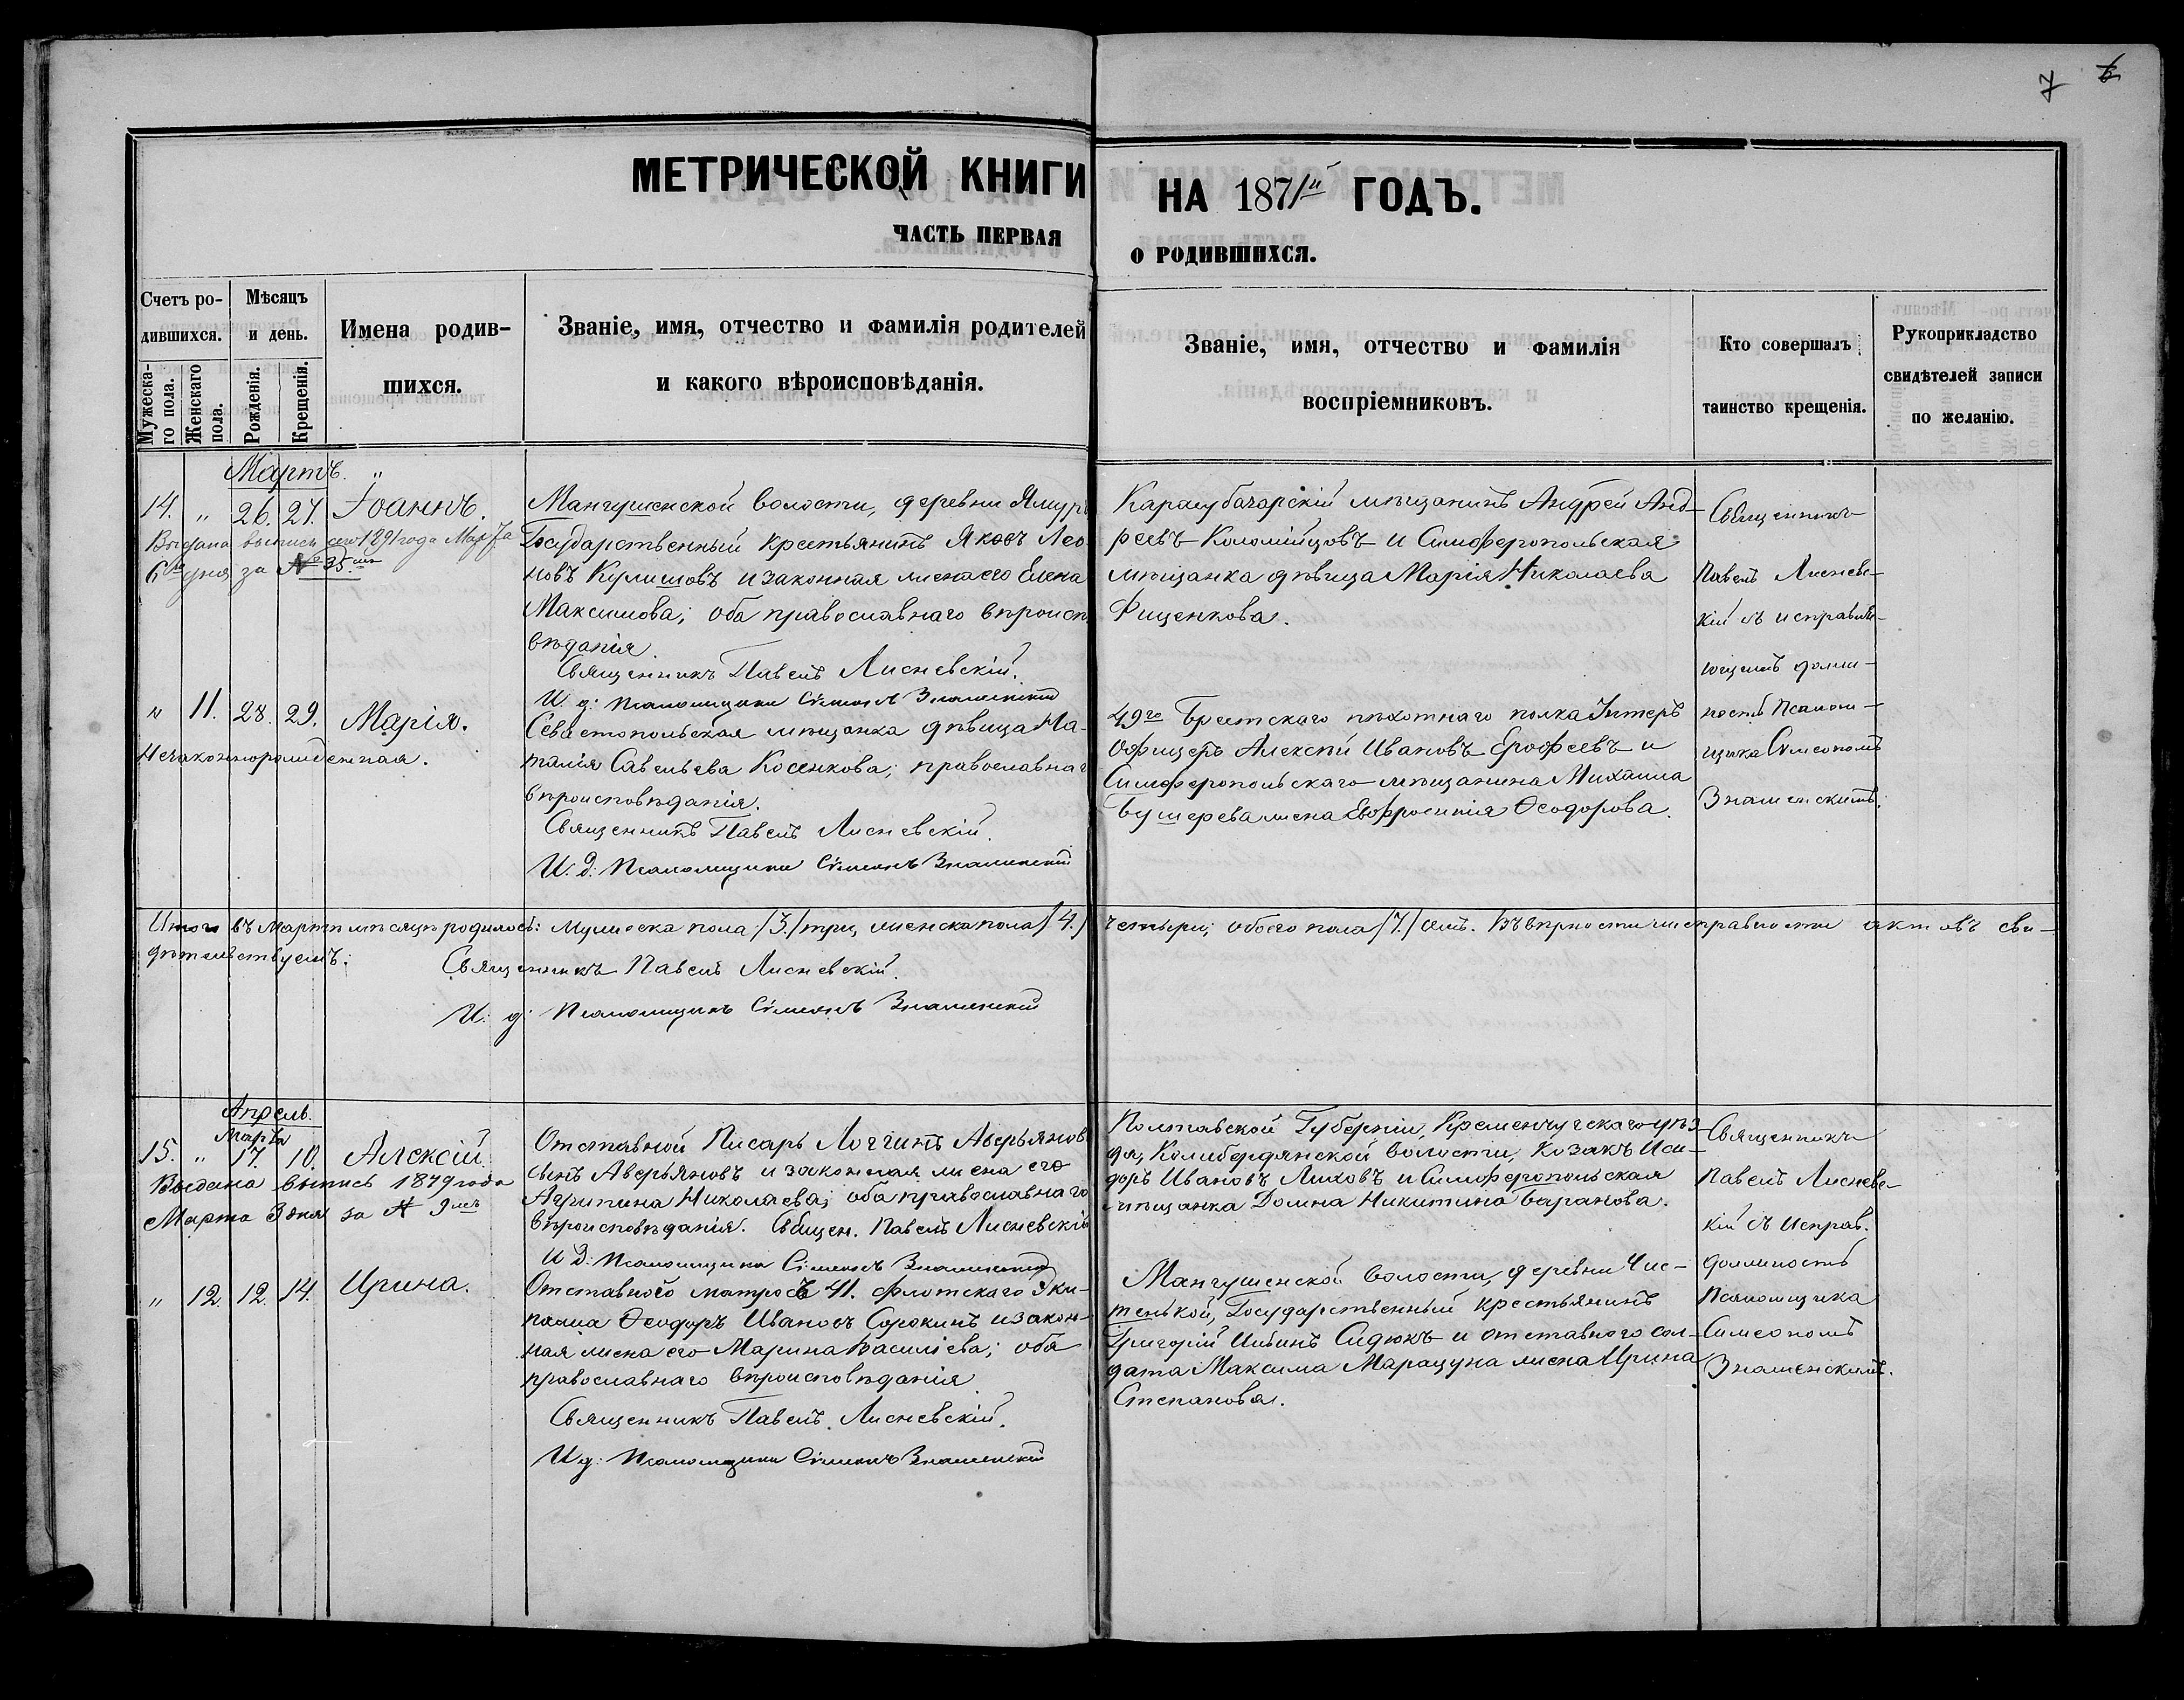 7 6
МЕТРИЧЕСКОЙ КНИГИ НА 1871й ГОДЪ.
ЧАСТЬ ПЕРВАЯ О РОДИВШИХСЯ.
Счетъ родившихся.
Мужескаго пола.
Женскаго пола.
Мѣсяцъ и день.
Рожденія.
Крещенія.
Имена родившихся.
Званіе, имя, отчество и фамилія родителей
и какого вѣроисповѣданія.
Званіе, имя, отчество и фамилія
воспріемниковъ.
Кто совершалъ
таинство крещенія.
Рукоприкладство
свидѣтелей записи
по желанію.
Мартъ.
14. " 26. 27. Іоаннъ.
Выдана выпись сего 1891 года Марта
6го дня за № 35.мъ
Мангушской волости, деревни Ямур
Государственный крестьянинъ Яковъ Лео
новъ Кулишовъ и законная жена его Елена
Максимова; оба православнаго вѣроиспо
вѣданія.
Священникъ Павелъ Лисневскій.
И. д: Псаломщика Сѵмеонъ Знаменскій
Карасубазарскій мѣщанинъ Андрей Анд-
реевъ Коломійцовъ и Симферопольская
мѣщанка дѣвица Марія Николаева
Фищенкова.
Священникъ
Павелъ Лисневс-
кій съ исправля-
ющимъ долж-
ность Псалом-
щика Симеономъ
Знаменскимъ.
" 11. 28. 29. Марія.
Незаконнорожденная.
Севастопольская мѣщанка дѣвица На-
талія Савельева Косенкова; православнаг
вѣроисповѣданія.
Священникъ Павелъ Лисневскій.
И. д: Псаломщика Сѵмеонъ Знаменскій
49го Брестскаго пѣхотнаго полка Унтеръ
Офицеръ Алексѣй Ивановъ Ерофеевъ и
Симферопольскаго мѣщанина Михаила
Бушерева жена Евфросинія Ѳеодорова.
Итого въ Мартѣ мѣсяцѣ родилось: Мужеска пола /3./ три, женска пола /4./ четыре; обоего пола /7./ семь. Въ вѣрности и исправности актовъ сви-
дѣтельствуемъ:
Священникъ Павелъ Лисневскій.
И. д: Псаломщикъ Сѵмеонъ Знаменскій
Апрель.
Марта
15. " 17. 10. Алексій.
Выдана выпись 1879 года
Марта 3 дня за № 9мъ
Отставной Писарь Логгинъ Аверьянов
сынъ Аверьяновъ и законная жена его
Агрипина Николаева; оба православнаго
вѣроисповѣданія. Священ. Павелъ Лисневскій
И. Д: Псаломщика Сѵмеонъ Знаменскій
Полтавской Губерніи, Кременчугскаго уѣз
да, Колибердянской волости, Козакъ Иси-
доръ Ивановъ Лиховъ и Симферопольская
мѣщанка Домна Никитина Баранова.
Священникъ
Павелъ Лисневс-
кій съ Исправ.
должность
Псаломщика
Симеономъ
Знаменскимъ.
" 12. 12. 14. Ирина.
Отставного матросъ 41. флотскаго Эки-
пажа Ѳеодоръ Ивановъ Сорокинъ и закон-
ная жена его Марина Василіева; оба
православнаго вѣроисповѣданія
Священникъ Павелъ Лисневскій.
И д: Псаломщика Сѵмеонъ Знаменскій
Мангушенской волости, деревни Чис-
тенькой, Государственный крестьянинъ
Григорій Сидюкъ и отставного сол-
дата Максима Марацуна жена Ирина
Степанова.